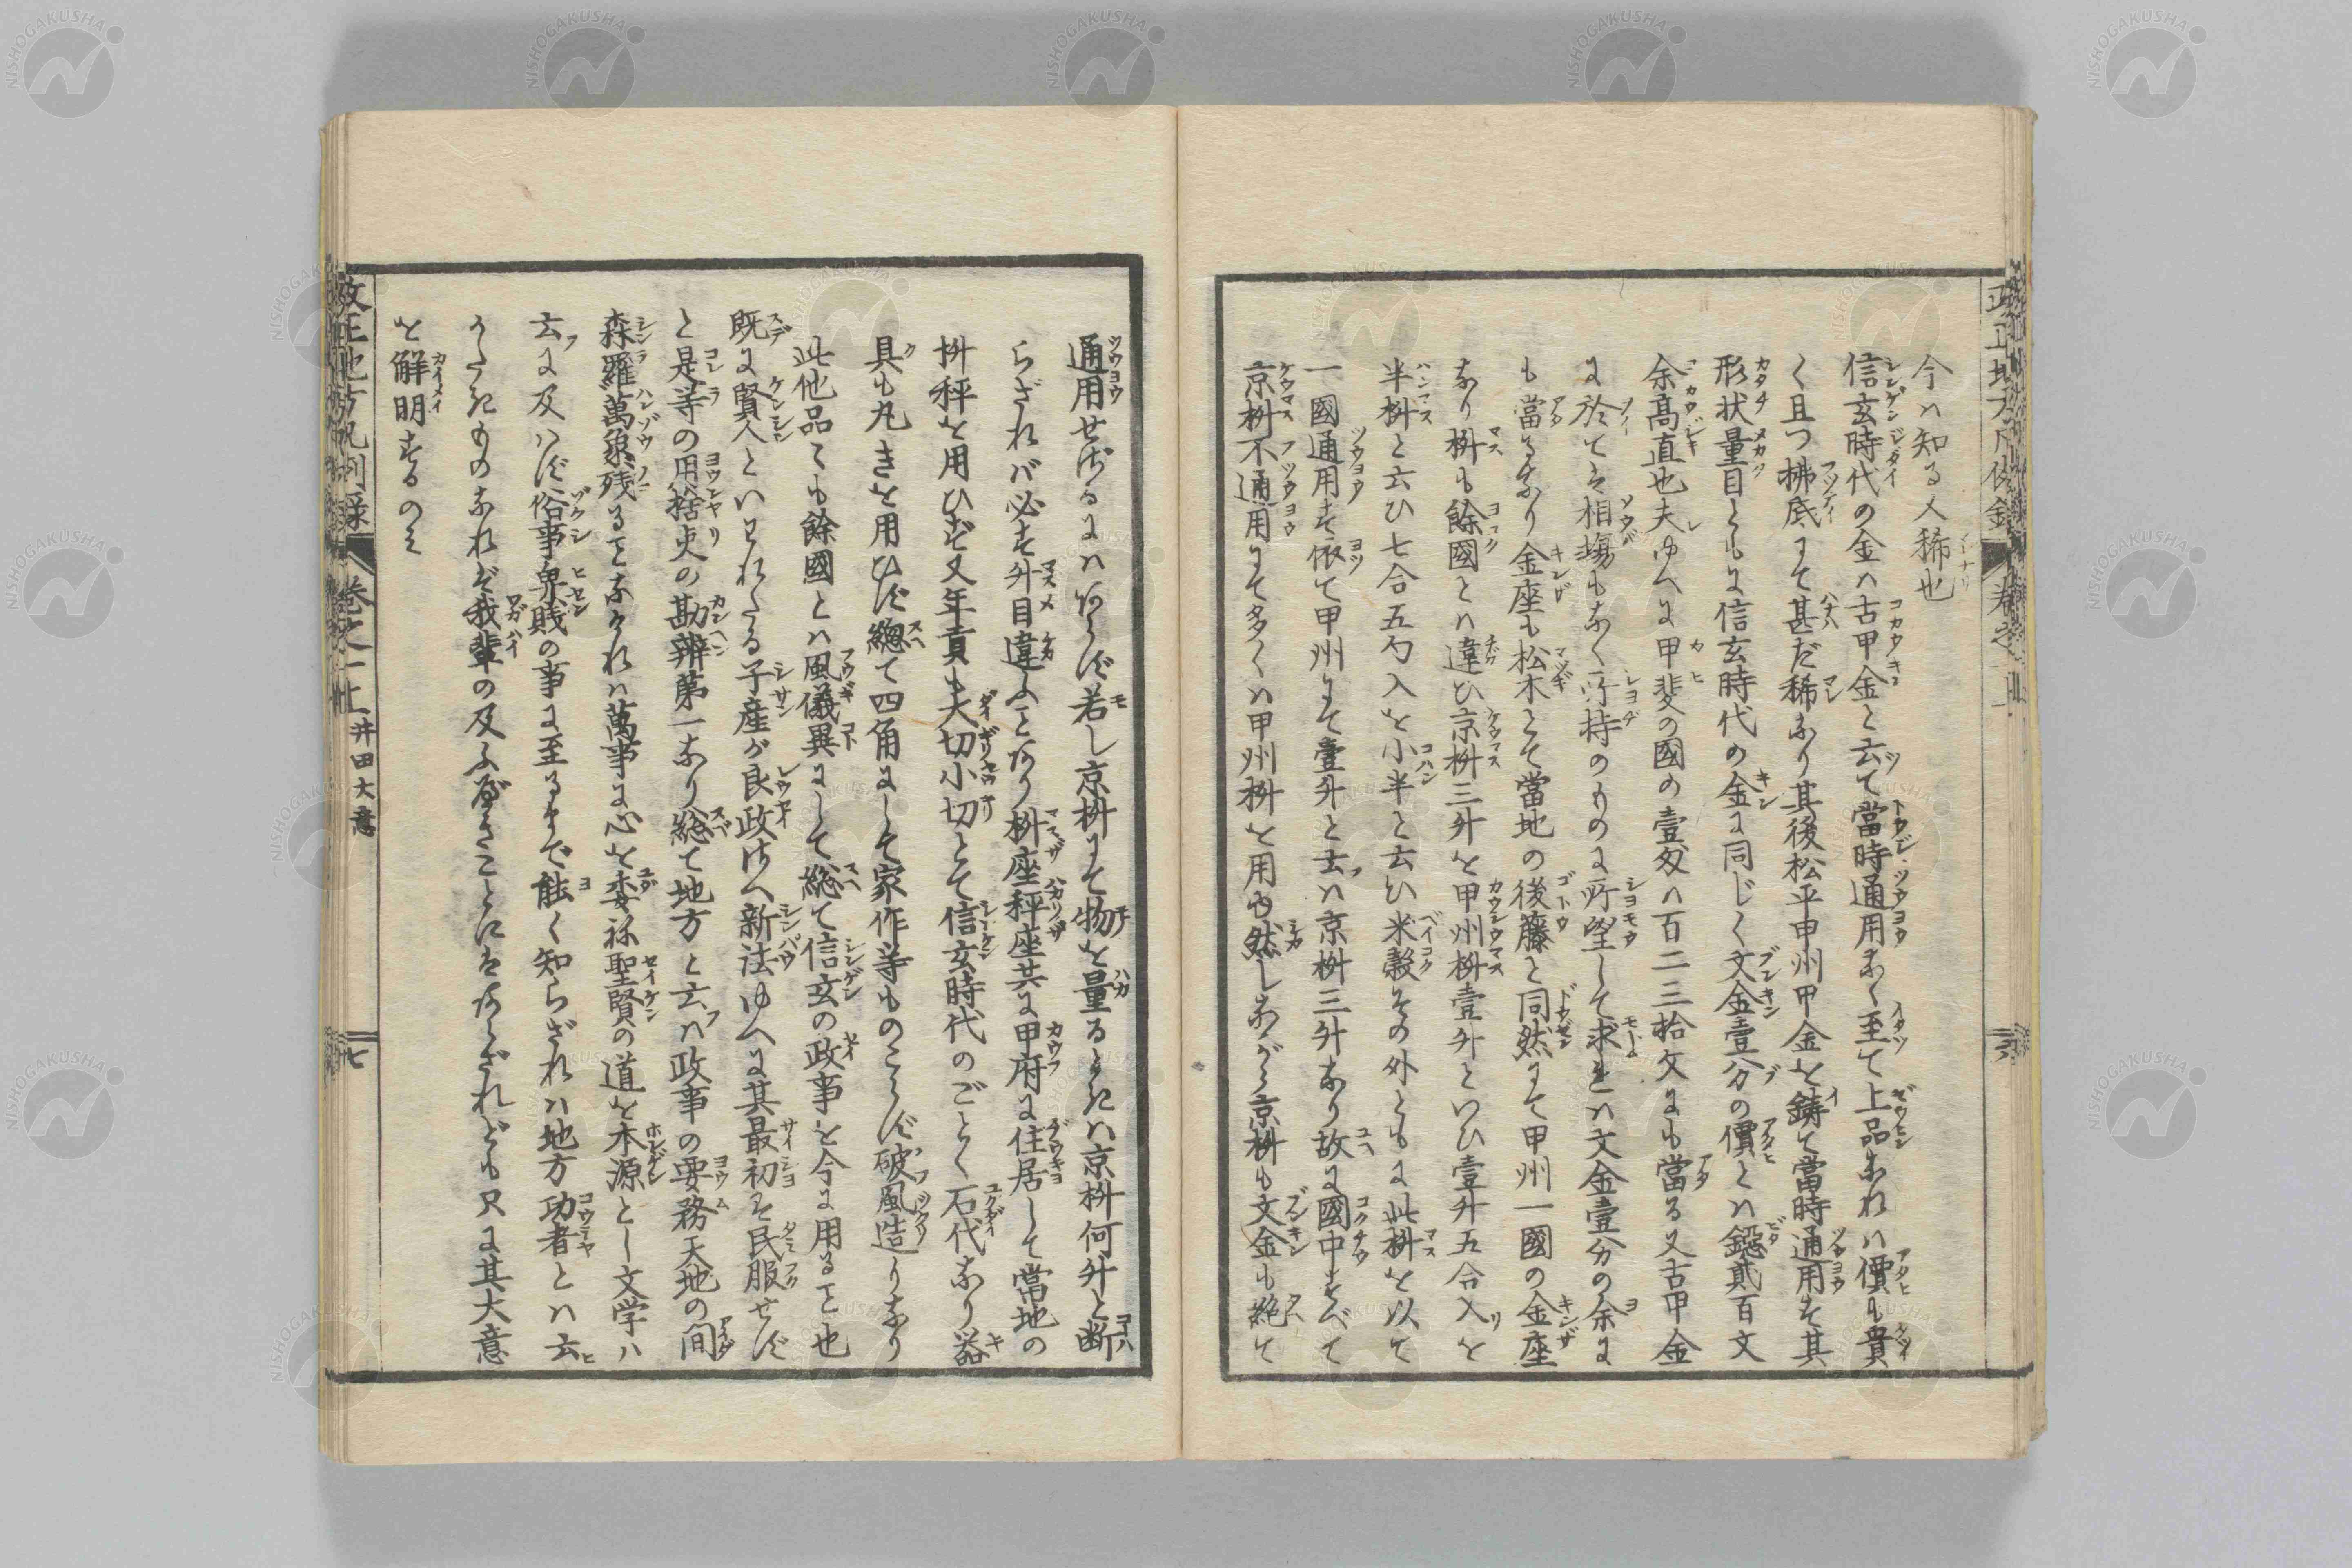 今ハ知る人稀也
信玄時代の金ハ古甲金と云て當時通用なく至て上品なれハ價も貴
く且つ拂底にて甚だ稀なり其後松平甲州甲金を鋳て當時通用す其
形状量目ともに信玄時代の金に同じく文金壹分の價とハ鐚貳百文
余高直也夫ゆへに甲斐の國の壹匁ハ百二三拾文にも當る又古甲金
に於てハ相塲もなく所持のものに所望して求れハ文金壹分の余に
も當るなり金座も松木とて當地の後藤と同然にて甲州一國の金座
なり桝も餘國とハ違ひ京桝三升を甲州桝壹升といひ壹升五合入を
半桝と云ひ七合五勺入を小半と云ひ米穀その外ともに此桝を以て
一國通用す依て甲州にて壹升と云ハ京桝三升なり故に國中すべて
京桝不通用にて多くハ甲州桝を用ゆ然しながら京桝も文金も絶て
通用せざるにハあらず若し京桝にて物を量るときハ京桝何升と断
らざれバ必す升目違ふとあり桝座秤座共に甲府に住居して當地の
桝秤を用ひず又年貢も大切小切とて信玄時代のごとく石代なり器
具も丸きを用ひず總て四角にして家作等ものこらず破風造りなり
此他品ミも餘國とハ風儀異にして総て信玄の政事を今に用ると也
既に賢人といわれたる子産が良政さへ新法ゆへに其最初ハ民服せず
と是等の用捨吏の勘辨第一なり総て地方と云ハ政事の要務天地の間
森羅萬象残ることなけれハ萬事に心を委ね聖賢の道を本源とし文学ハ
云に及ハず俗事卑賎の事に至るまで能く知らざれハ地方功者とハ云
かたきものなれど我輩の及ふ所きことにハあらざれども只に其大意
を解明するのミ
改正地方凡例録
巻之一上
井田大意
七